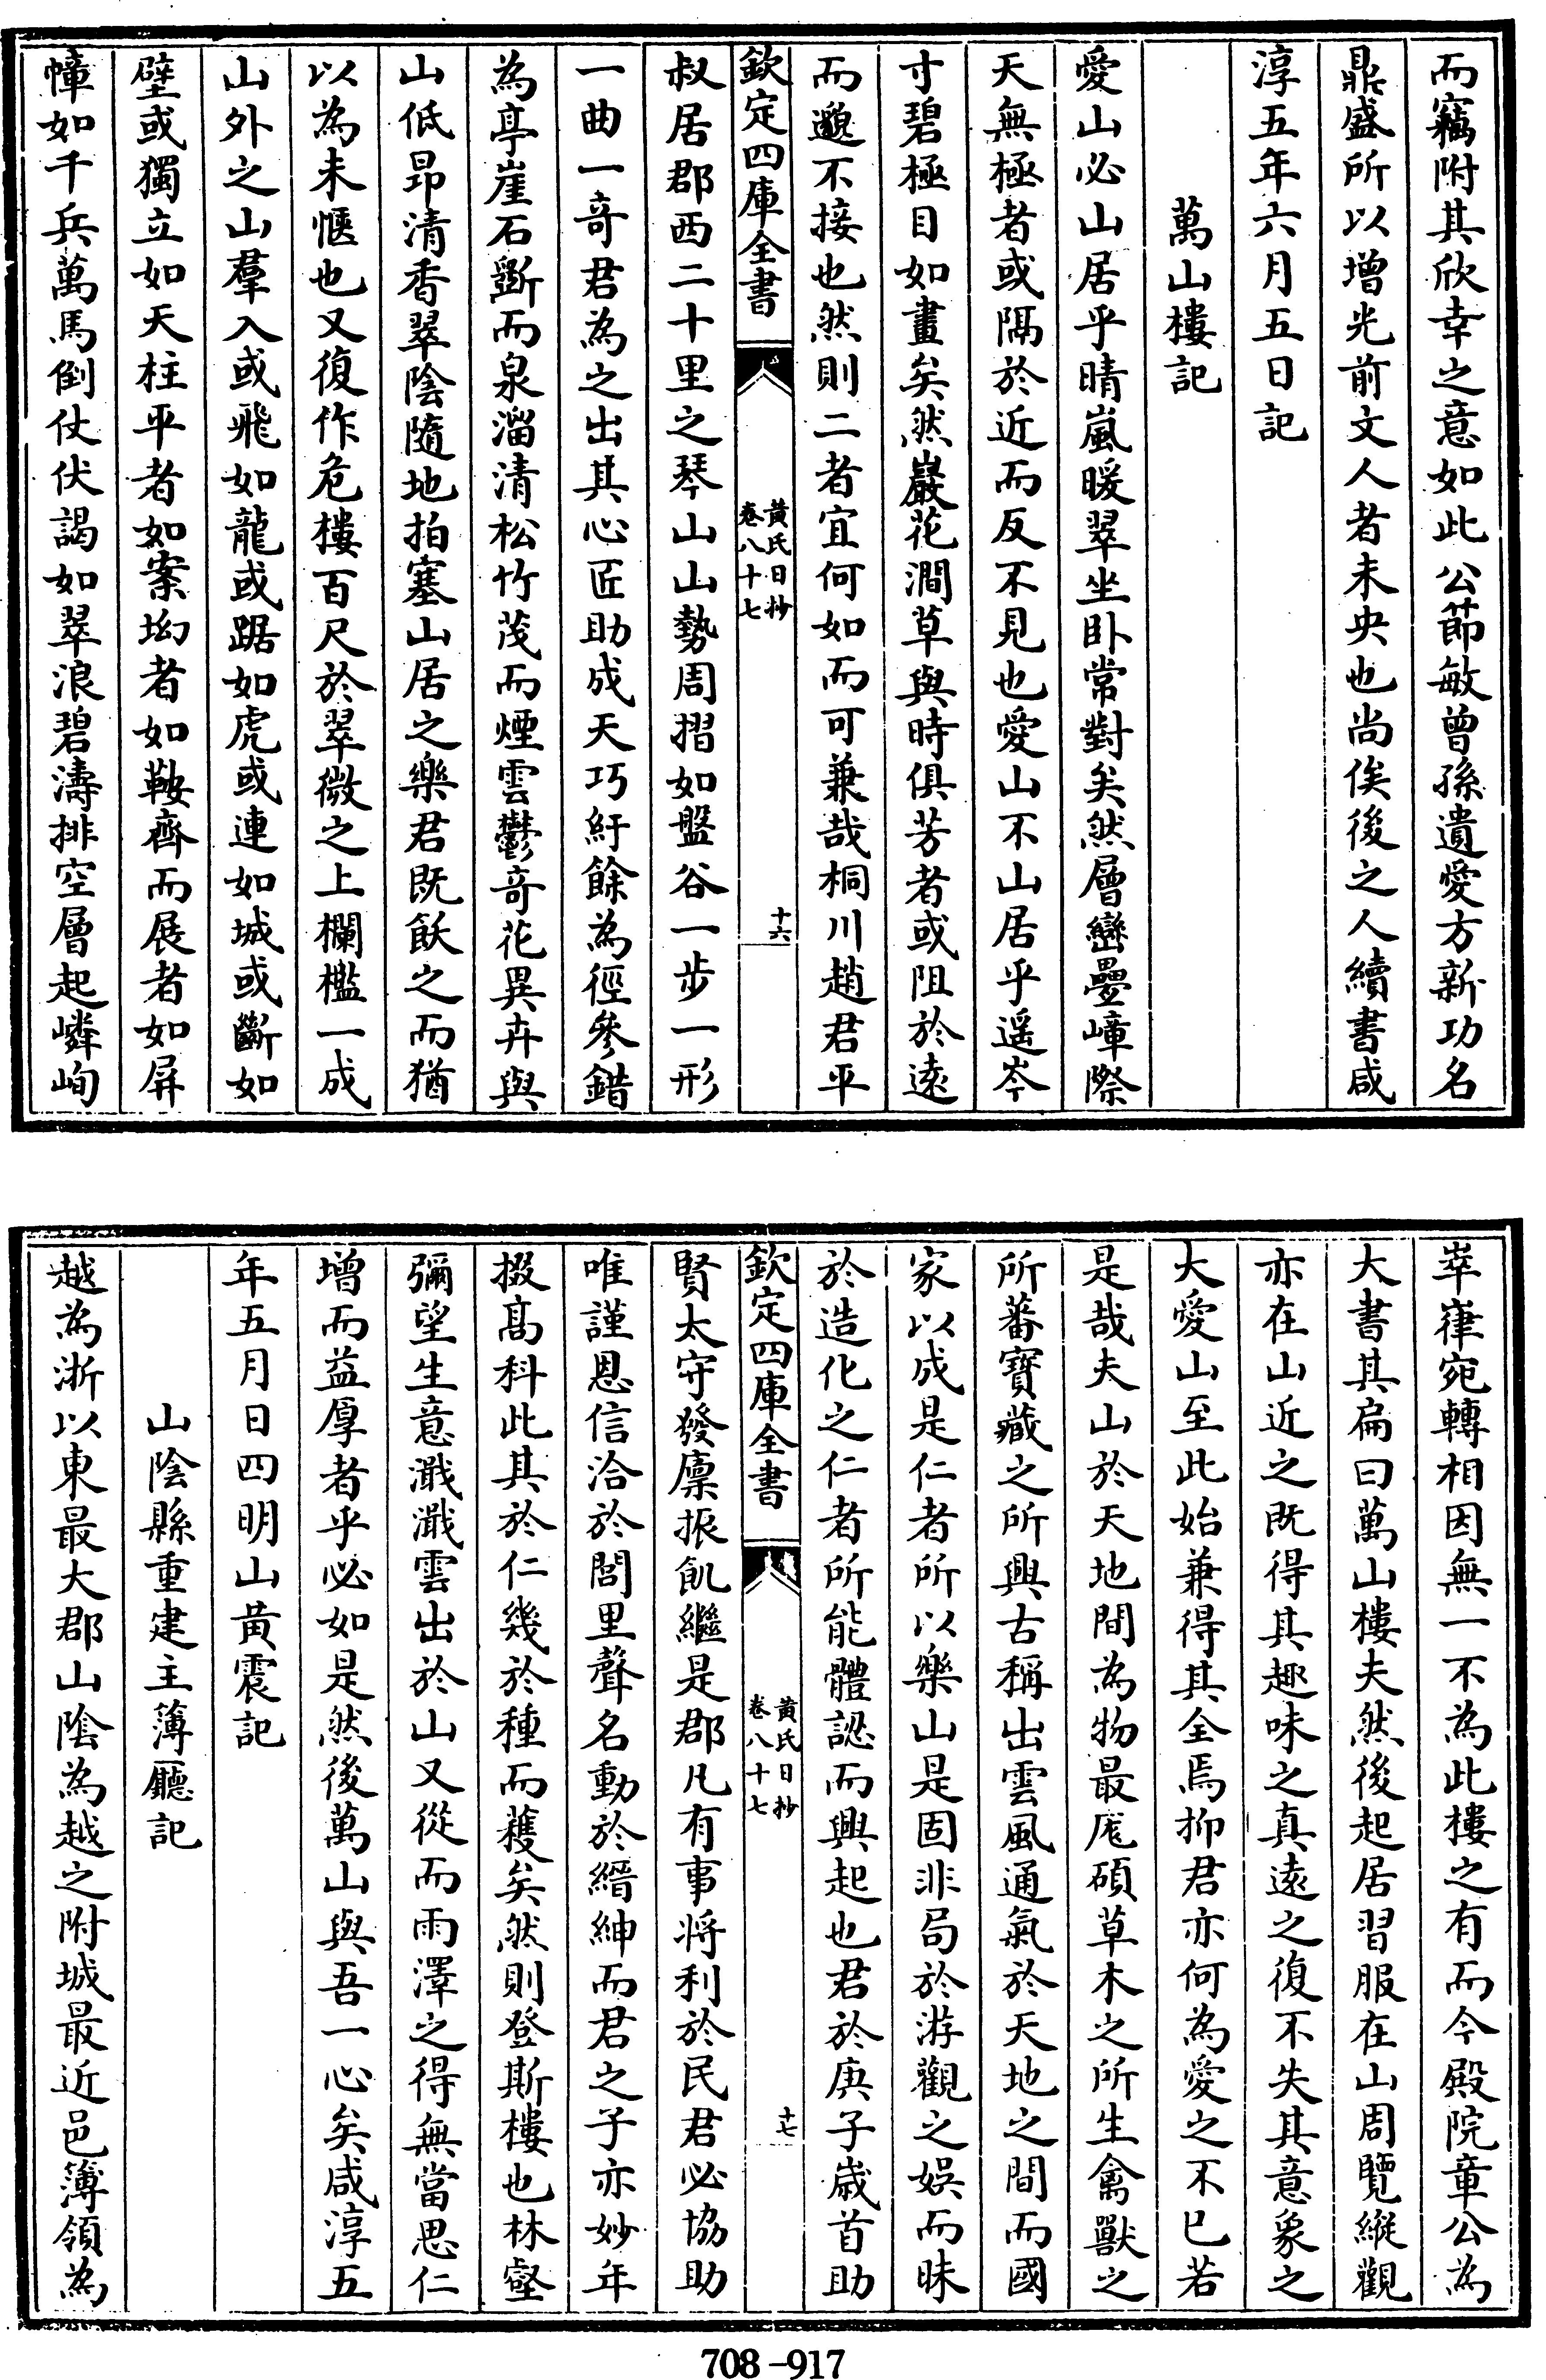 而竊附其欣幸之意如此公節敏曾孫遺愛方新功名
鼎盛所以增光前文人者未央也尚俟後之人續書咸
淳五年六月五日記
萬山樓記
愛山必山居乎晴嵐暖翠坐卧常對矣然層巒疊嶂際
天無極者或隔於近而反不見也愛山不山居乎遥岑
寸碧極目如畫矣然巖花澗草與時俱芳者或阻於遠
而邈不接也然則二者宜何如而可兼哉桐川趙君平
欽定四庫全書
黄氏日抄
卷八十七
十六
叔居郡西二十里之琴山山勢周摺如盤谷一步一形
一曲一竒君為之出其心匠助成天巧紆餘為徑參錯
為亭崖石斷而泉溜清松竹茂而煙雲鬱竒花異卉與
山低昻清香翠陰隨地拍塞山居之樂君既飫之而猶
以為未愜也又復作危樓百尺於翠微之上欄檻一成
山外之山羣入或飛如龍或踞如虎或連如城或斷如
壁或獨立如天柱平者如案坳者如鞍齊而展者如屏
幛如千兵萬馬倒仗伏謁如翠浪碧濤排空層起嶙峋
崒嵂宛轉相因無一不為此樓之有而今殿院章公為
大書其扁曰萬山樓夫然後起居習服在山周覽縱觀
亦在山近之既得其趣味之真遠之復不失其意象之
大愛山至此始兼得其全焉抑君亦何為愛之不已若
是哉夫山於天地間為物最厖碩草木之所生禽獸之
所蕃寳藏之所興古稱出雲風通氣於天地之間而國
家以成是仁者所以樂山是固非局於游觀之娛而昧
於造化之仁者所能體認而興起也君於庚子嵗首助
欽定四庫全書
黄氏日抄
卷八十七
十七
賢太守發廪振飢繼是郡凡有事将利於民君必協助
唯謹恩信洽於閭里聲名動於縉紳而君之子亦妙年
掇髙科此其於仁幾於種而穫矣然則登斯樓也林壑
彌望生意濈濈雲出於山又從而雨澤之得無當思仁
增而益厚者乎必如是然後萬山與吾一心矣咸淳五
年五月日四明山黄震記
山陰縣重建主簿廳記
越為浙以東最大郡山陰為越之附城最近邑簿領為
708-917